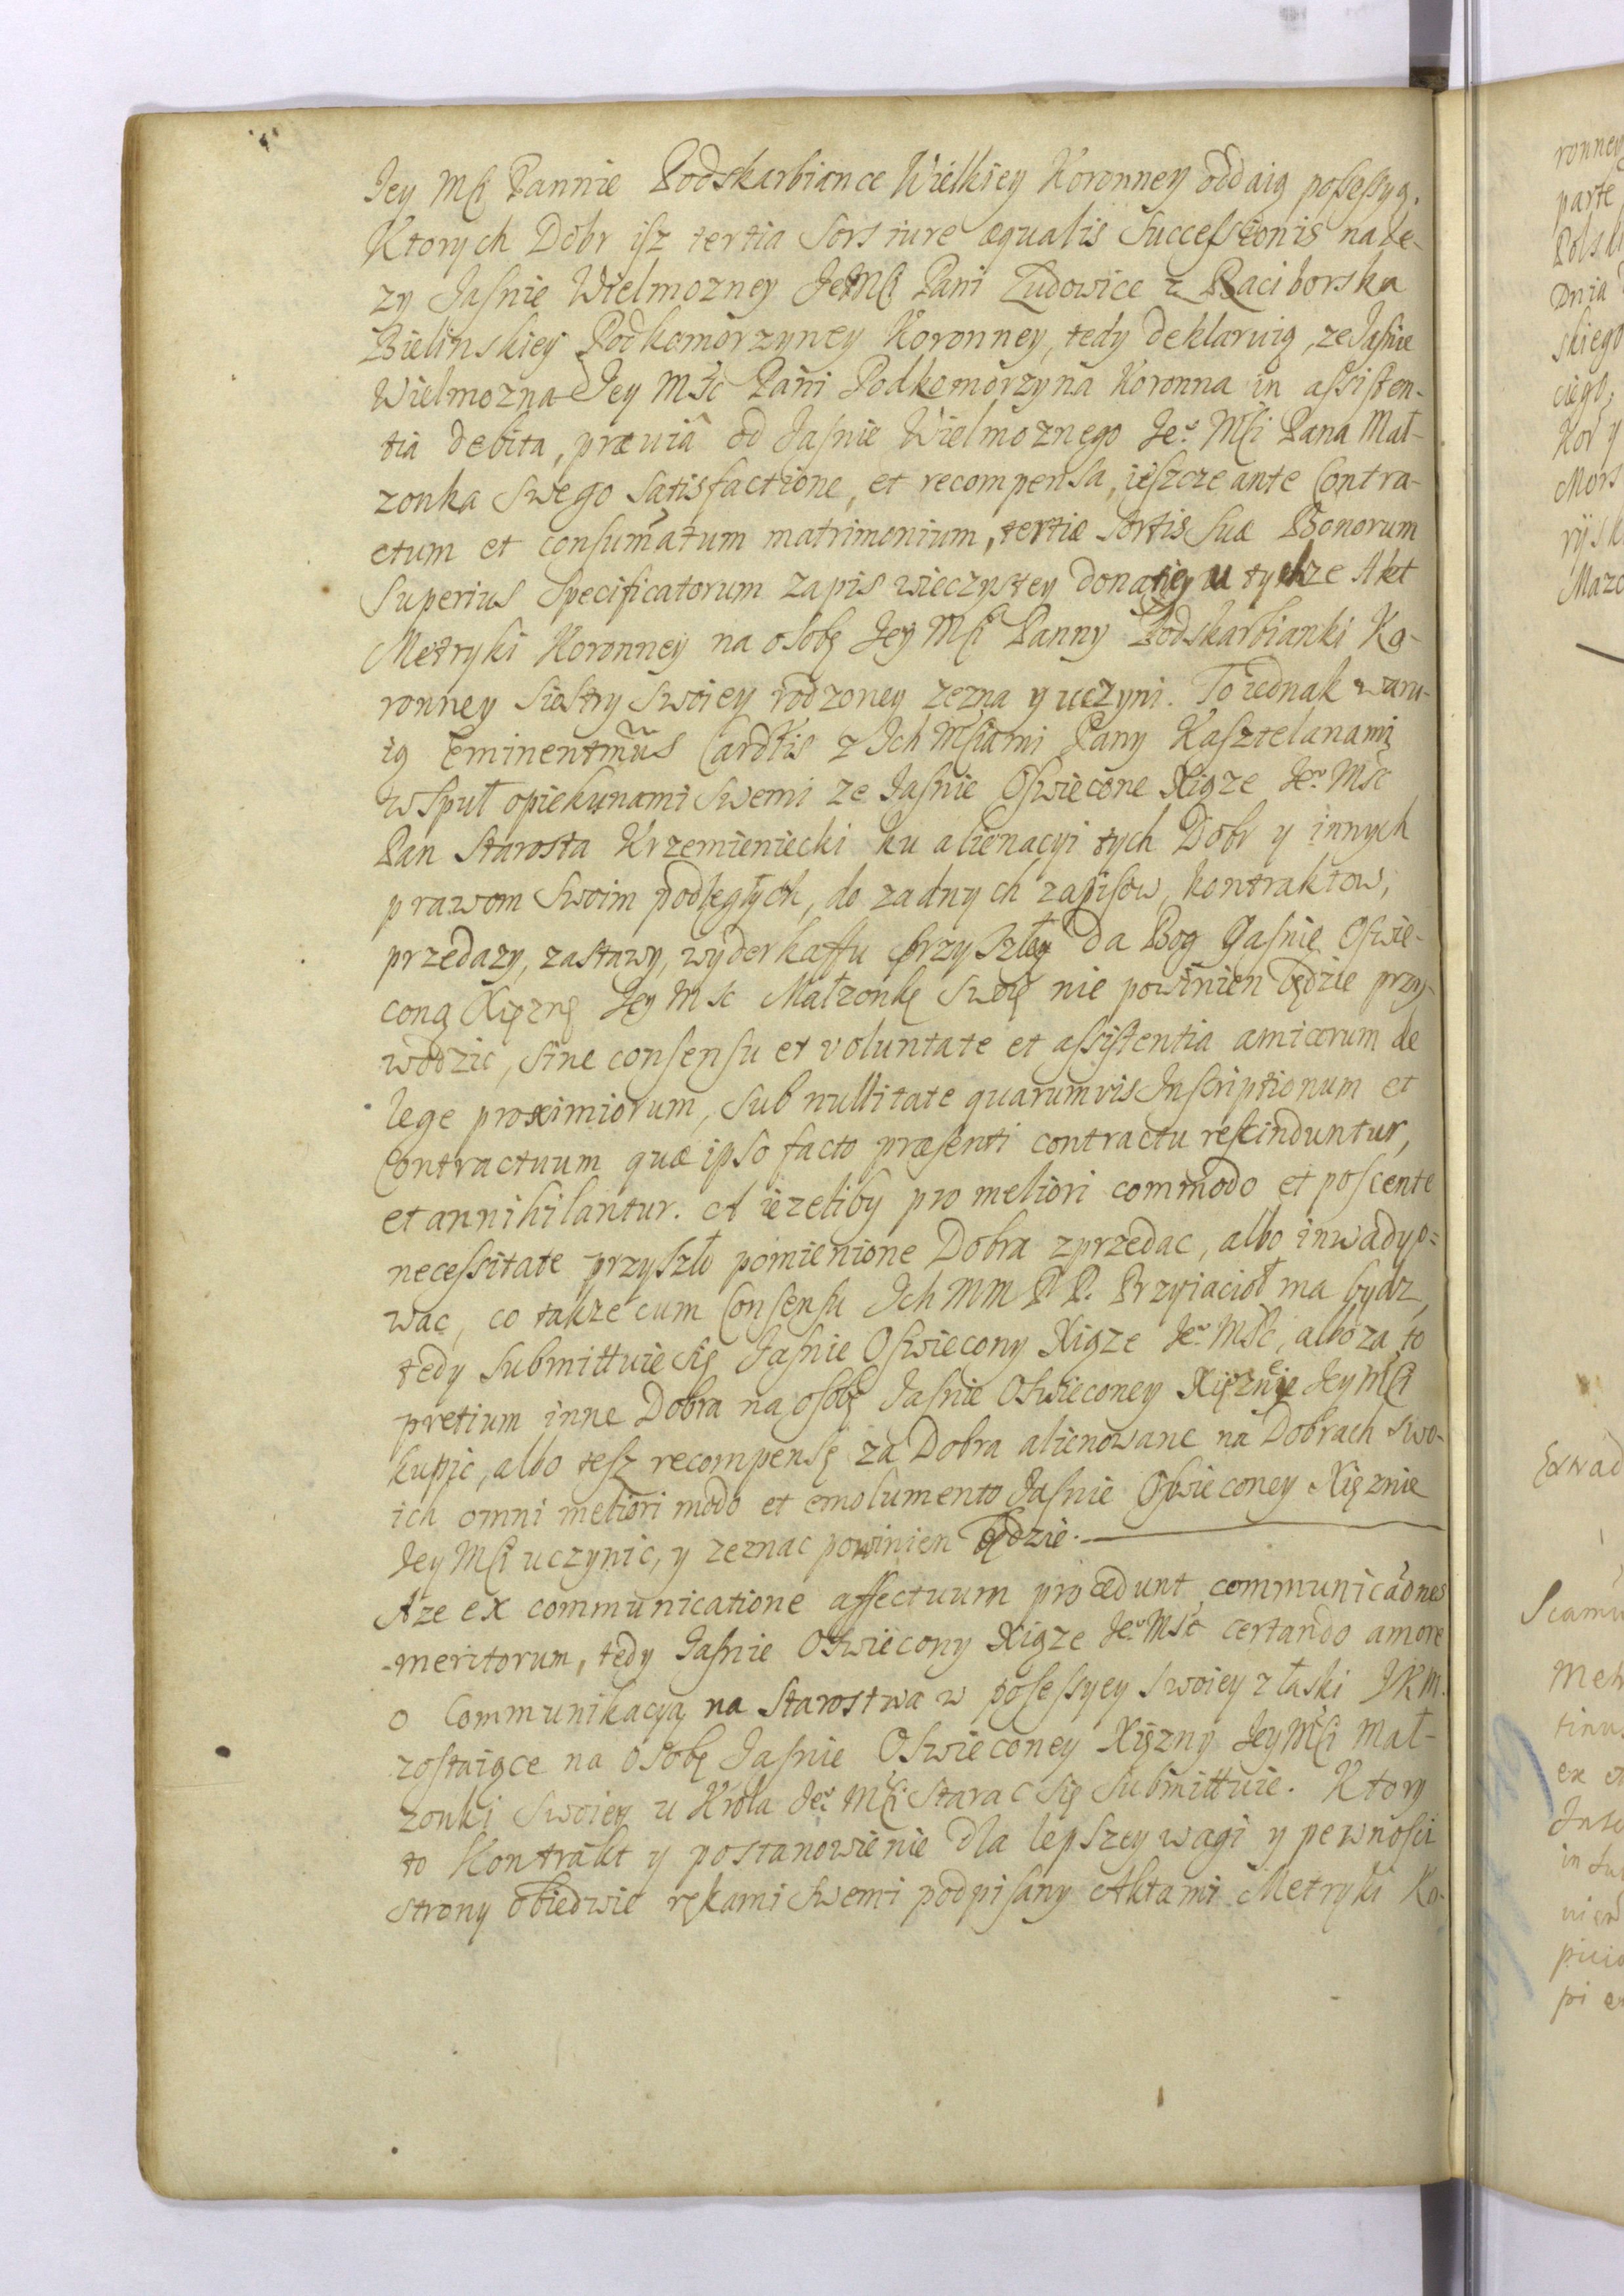 Jey Mći Pannie Podskarbiance Wielkiey Koronney oddaią possessyą.
Ktorych Dobr isz tertia sors iure æqualis Successionis nale-
zy Jasnie Wielmozney Jey Mći Pani Ludowice z Raciborska
Bielinskiey Podkomorzyney Koronney, tedy deklaruią, ze Jasnie
Wielmozna Jey Mść Pani Podkomorzyna Koronna in assisten-
tia debita, præuiâ od Jasnie Wielmoznego Jeº Mći Pana Mał-
zonka swego satisfactione, et recompensa, ieszcze ante Contra-
ctum et consumatum matrimonium, tertiæ sortis suæ Bonorum
superius specificatorum zapis wieczystey donatiey u tychze Akt
Metryki Koronney na osobę Jey Mći Panny Podskarbianki Ko-
ronney siostry swoiey rodzoney zezna y uczyni. To iednak waru-
ią Eminentmus Cardlis z Ich Mściami Pany Kasztelanami
wsput opiekunami swemi ze Jasnie Oswiecone Xiąze Jeº Mść
Pan Starosta Krzemieniecki ku alienacyi tych Dobr y innych
prawom swoim podległych, do zadnych zapisow, kontraktow,
przedazy, zastawy, wyderkaffu przyszłey da Bog Jasnie Oswie-
coną Xięznę Jey Msc Małzonkę swoię nie powinien będzie przy-
wodzic, sine consensu et voluntate et assistentia amicorum de
lege proximiorum, sub nullitate quarumvis Inscriptionum et
Contractuum quæ ipso facto præsenti contractu rescinduntur,
et annihilantur. A iezeliby pro meliori commodo et poscente
necessitate przyszło pomienione Dobra zprzedac, albo inwadyo=
wac, co takze cum Consensu Ich MM PP. Przyiacioł ma bydz,
tedy submittuie się Jasnie Oswiecony Xiąze Jeº Mść, albo za to
pretium inne Dobra na osobę Jasnie Oswieconey Xięzney Jey Mći
kupic, albo tesz recompensę za Dobra alienowane na Dobrach swo-
ich omni meliori modo et emolumento Jasnie Oswieconey Xięznie
Jey Mći uczynic, y zeznac powinien będzie.
A ze ex communicatione affectuum procedunt communicaones
meritorum, tedy Jasnie Oswiecony Xiąze Jeº Mść certando amore
o Communikacyą na Starostwa w posessyey swoiey z łaski JKM.
zostaiące na osobę Jasnie Oswieconey Xięzny Jey Mći Mał-
zonki swoiey u Krola Jeº Mći starac się submittuie. Ktory
to Kontrakt y postanowienie dla lepszey wagi y pewnosci
strony obiedwie rękami swemi podpisany Aktami Metryki Ko-